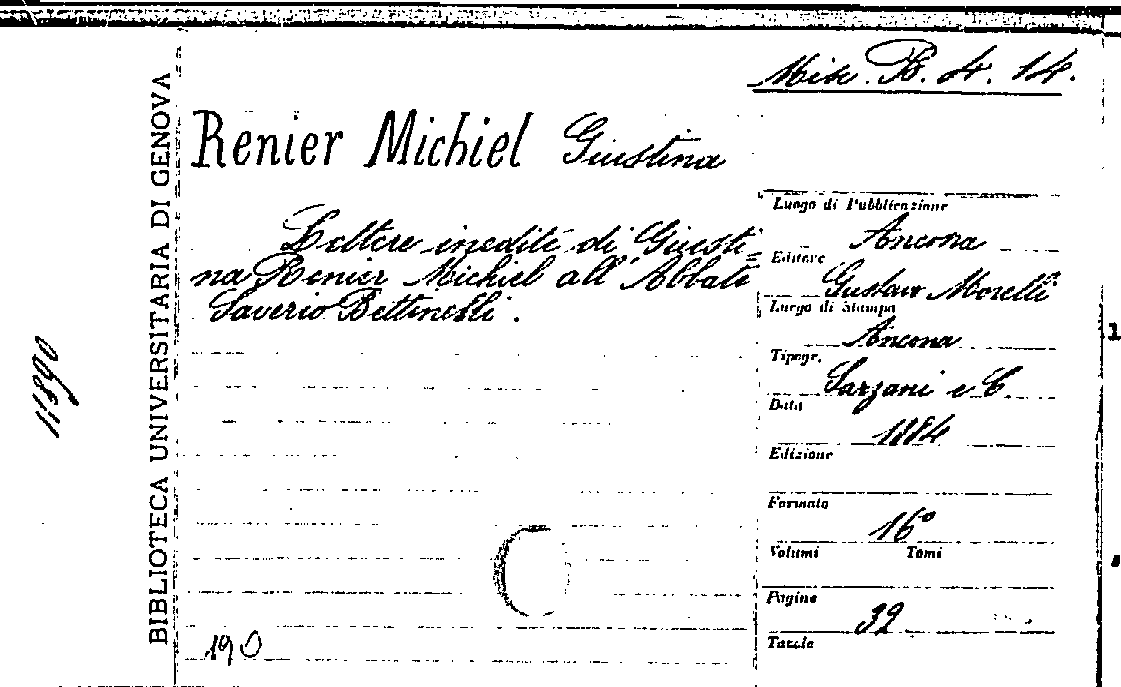 Misc. B. 4. 14.
BIBLIOTECA UNIVERSITARIA DI GENOVA
11890
Renier Michiel Giustina
Lettere inedite di Giusti=
na Renier Michiel all'Abbate
Saverio Bettinelli.
190
Luogo di Pubblicazione
Ancona
Editore
Gustavo Morelli
Luogo di Stampa
Ancona
Tipogr.
Sarzani e C.
Data
1884
Edizione
Formato
16°
Volumi Tomi
Pagine
32
Tavole
1